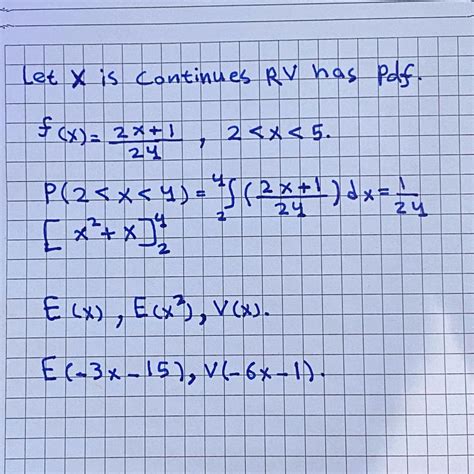 Let X is continues RV has Pdf.
f(x) = (2x+1)/24 , 2<x<5.
P(2<x<4) = ₂⁴∫ ((2x+1)/24) dx = 1/24
[x²+x]₂⁴
E(x), E(x²), V(x).
E(-3x-15), V(-6x-1).